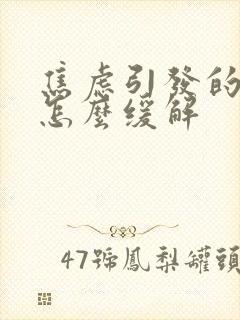 焦慮引發的
怎麼緩解
47號鳳梨罐頭